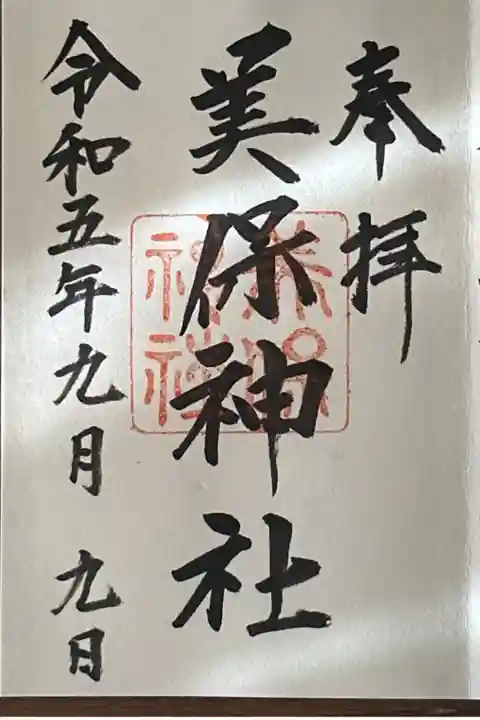 奉拝
美保神社
令和五年九月九日
美保神社